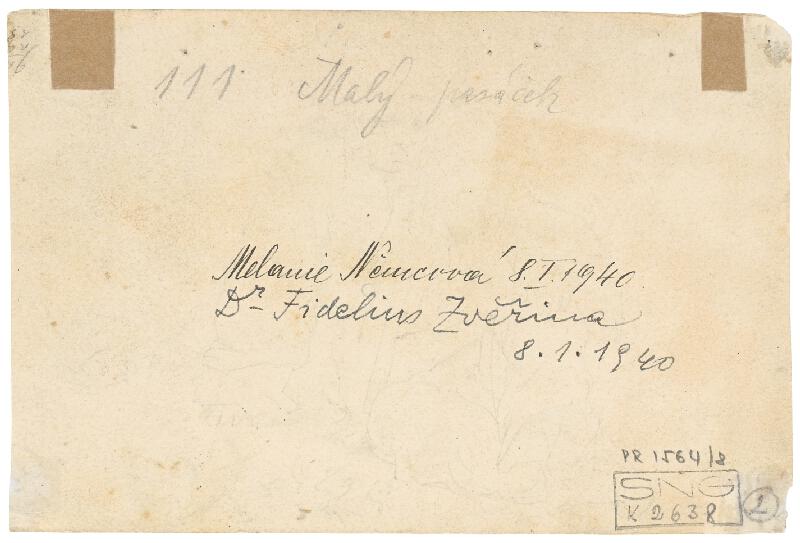 111 Malý pasáček
Melanie Němcová 8.I.1940
Dr Fidelius Zvěřina
8.1.1940
PR 1564/8
SNG
K 2638
1